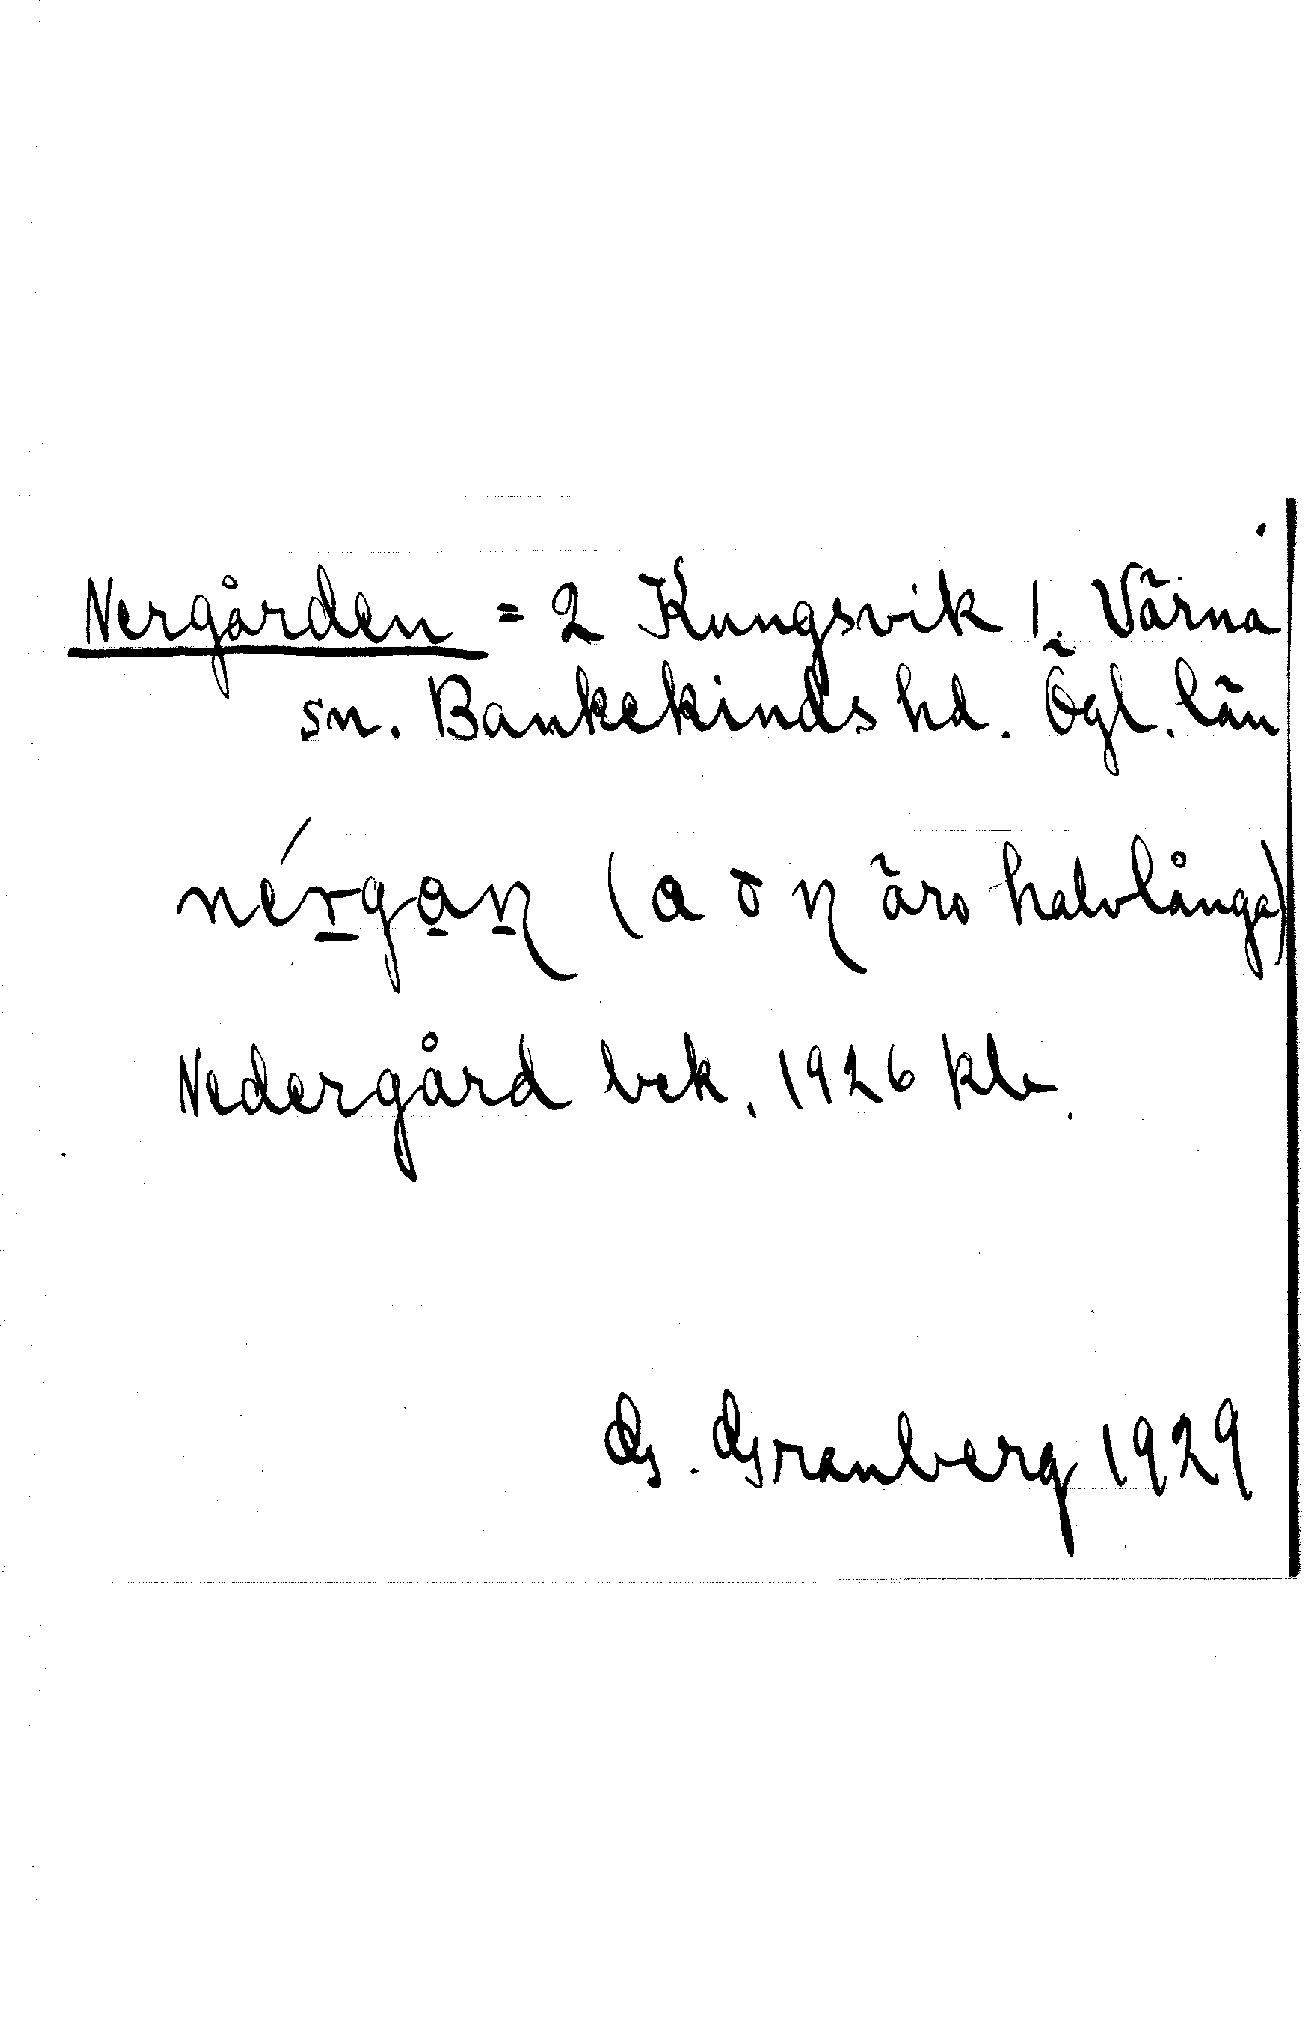 Nergården = 2 Kungsvik 1. Värna
sn. Bankekinds hd. Ögl. län
nérgaɳ (a o ɳ äro halvlånga)
Nedergård bek. 1926 kb.
G. Granberg 1929